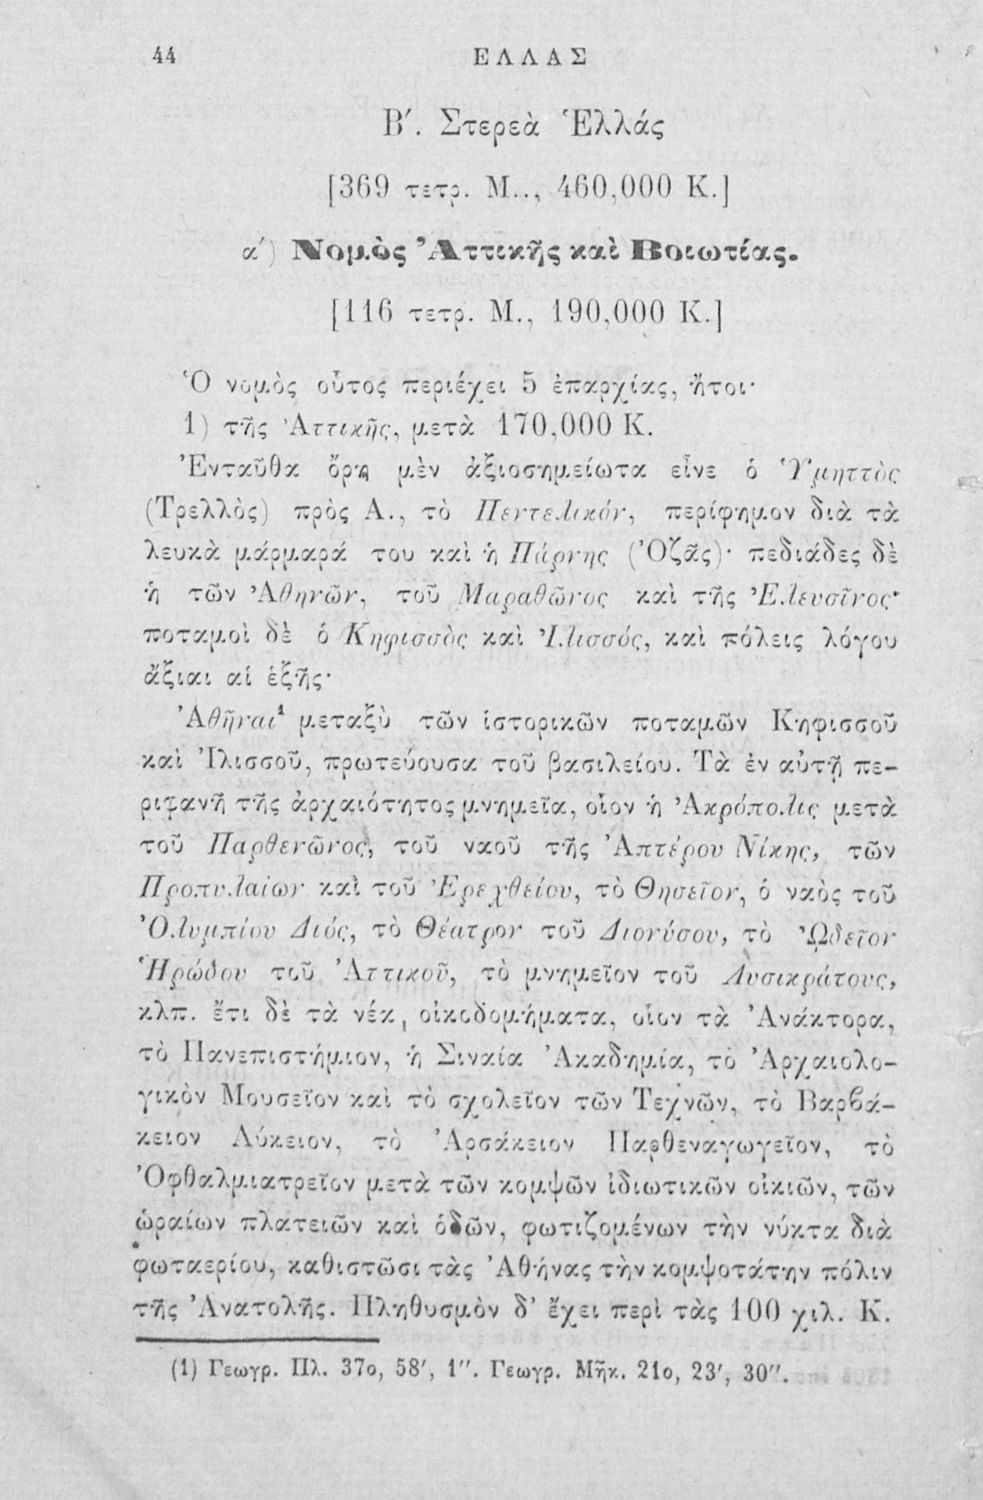 44 ΕΛΛΑΣ
Β΄. Στερεὰ Ἑλλάς
[369 τετρ. Μ.., 460,000 Κ.]
α΄) Νομὸς Ἀττικῆς καὶ Βοιωτίας.
[116 τετρ. Μ., 190,000 Κ.]
Ὁ νομὸς οὗτος περιέχει 5 ἐπαρχίας, ἤτοι·
1) τῆς Ἀττικῆς, μετὰ 170,000 Κ.
Ἐνταῦθα ὄρη μὲν ἀξιοσημείωτα εἶνε ὁ Ὑμηττὸς
(Τρελλὸς) πρὸς Α., τὸ Πεντελικόν, περίφημον διὰ τὰ
λευκὰ μάρμαρά του καὶ ἡ Πάρνης (Ὀζᾶς)· πεδιάδες δὲ
ἡ τῶν Ἀθηνῶν, τοῦ Μαραθῶνος καὶ τῆς Ἐλευσῖνος·
ποταμοὶ δὲ ὁ Κηφισσὸς καὶ Ἰλισσός, καὶ πόλεις λόγου
ἄξιαι αἱ ἑξῆς·
Ἀθῆναι¹ μεταξὺ τῶν ἱστορικῶν ποταμῶν Κηφισσοῦ
καὶ Ἰλισσοῦ, πρωτεύουσα τοῦ βασιλείου. Τὰ ἐν αὐτῇ πε-
ριφανῆ τῆς ἀρχαιότητος μνημεῖα, οἷον ἡ Ἀκρόπολις μετὰ
τοῦ Παρθενῶνος, τοῦ ναοῦ τῆς Ἀπτέρου Νίκης, τῶν
Προπυλαίων καὶ τοῦ Ἐρεχθείου, τὸ Θησεῖον, ὁ ναὸς τοῦ
Ὀλυμπίου Διός, τὸ Θέατρον τοῦ Διονύσου, τὸ Ὠδεῖον
Ἡρώδου τοῦ Ἀττικοῦ, τὸ μνημεῖον τοῦ Λυσικράτους,
κλπ. ἔτι δὲ τὰ νέα οἰκοδομήματα, οἷον τὰ Ἀνάκτορα,
τὸ Πανεπιστήμιον, ἡ Σιναία Ἀκαδημία, τὸ Ἀρχαιολο-
γικὸν Μουσεῖον καὶ τὸ σχολεῖον τῶν Τεχνῶν, τὸ Βαρβά-
κειον Λύκειον, τὸ Ἀρσάκειον Παρθεναγωγεῖον, τὸ
Ὀφθαλμιατρεῖον μετὰ τῶν κομψῶν ἰδιωτικῶν οἰκιῶν, τῶν
ὡραίων πλατειῶν καὶ ὁδῶν, φωτιζομένων τὴν νύκτα διὰ
φωταερίου, καθιστῶσι τὰς Ἀθήνας τὴν κομψοτάτην πόλιν
τῆς Ἀνατολῆς. Πληθυσμὸν δ' ἔχει περὶ τὰς 100 χιλ. Κ.
(1) Γεωγρ. Πλ. 37ο, 58', 1''. Γεωγρ. Μῆκ. 21ο, 23', 30''.